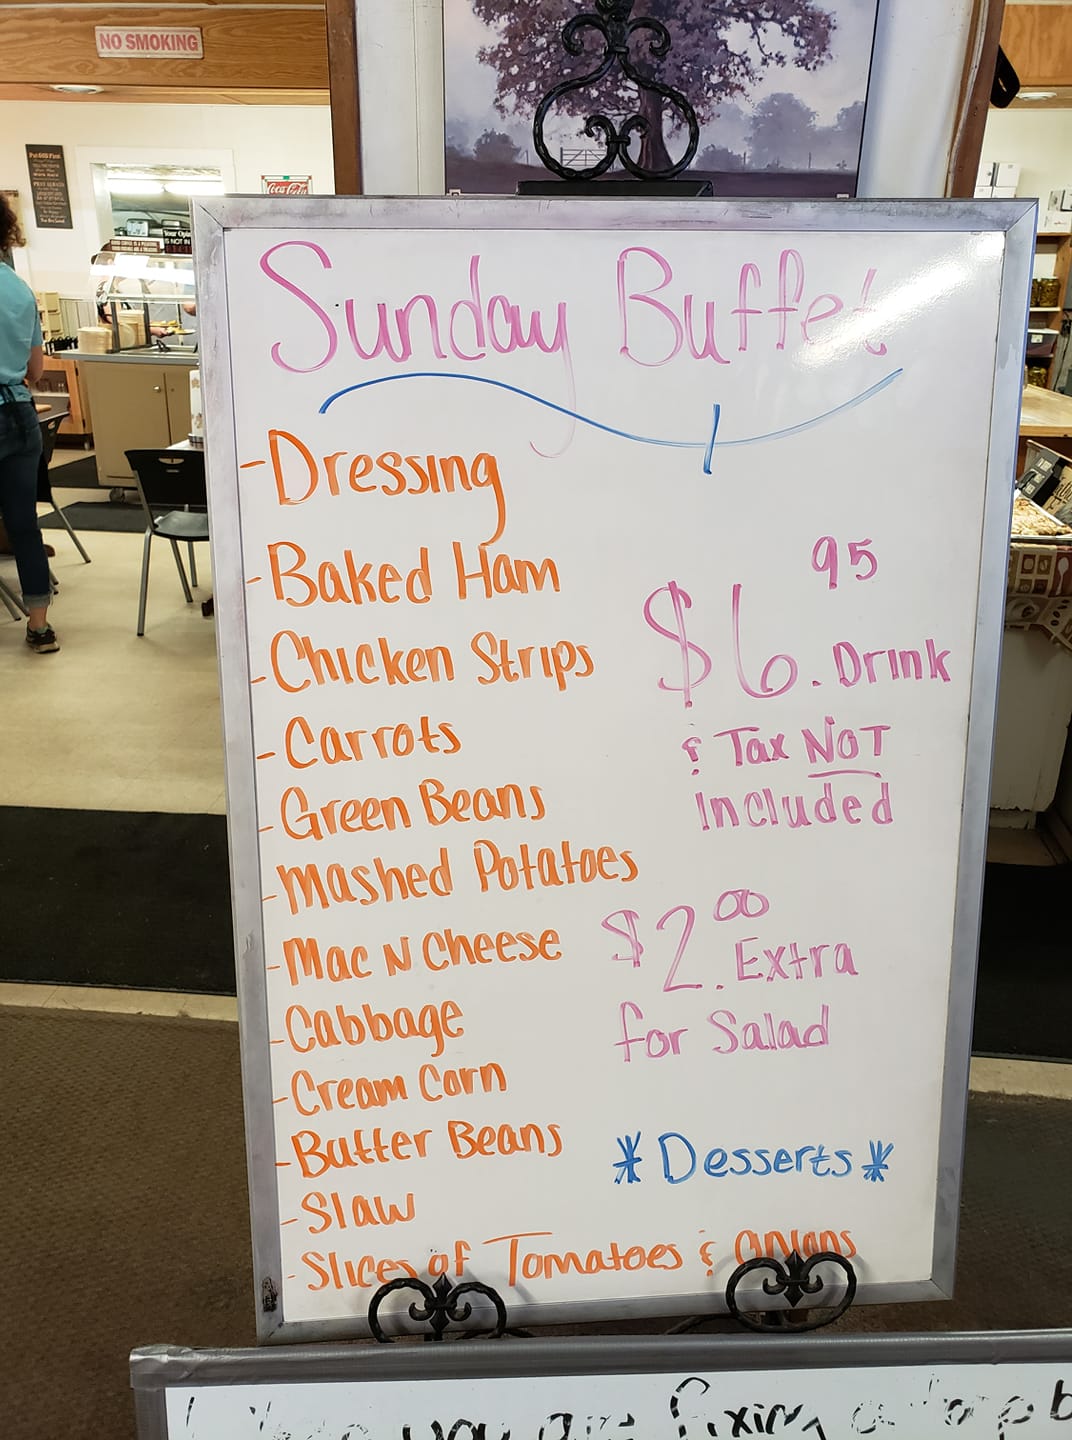 NO SMOKING
Put GOD First
Coca-Cola
Sunday Buffet
-Dressing
-Baked Ham
-Chicken Strips
-Carrots
-Green Beans
-Mashed Potatoes
-Mac N Cheese
-Cabbage
-Cream Corn
-Butter Beans
-Slaw
-Slices of Tomatoes & Onions
$6.95 Drink
& Tax NOT
Included
$2.00 Extra
for Salad
*Desserts*
you are fixing a